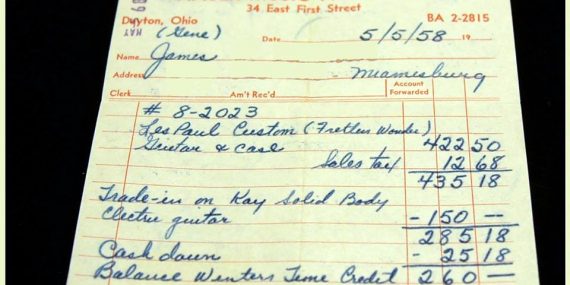 34 East First Street
Dayton, Ohio
BA 2-2815
MAY
(Gene)
Date 5/5/58 19
Name James
Address Miamesburg
Clerk Am't Rec'd Account Forwarded
# 8-2023
Les Paul Custom (Fretless Wonder)
Guitar & Case 422 50
Sales tax 12 68
435 18
Trade-in on Kay Solid Body
Electric guitar - 150 —
285 18
Cash down - 25 18
Balance Winters Time Credit 260 —